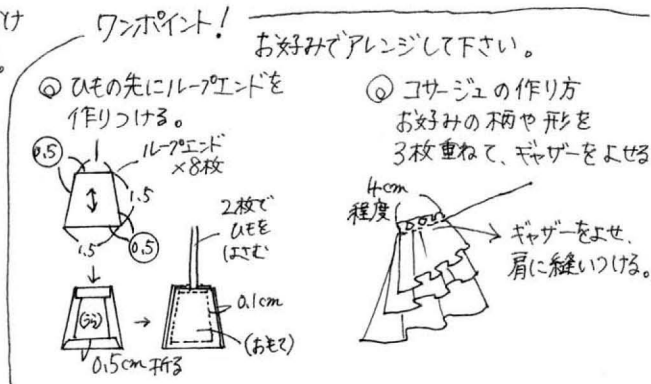 け
。
ワンポイント!
お好みでアレンジして下さい。
◎ ひもの先にループエンドを
作りつける。
0.5
ループエンド
×8枚
1.5
1.5
0.5
(うら)
0.5cm折る
2枚で
ひもを
はさむ
0.1cm
(おもて)
◎ コサージュの作り方
お好みの柄や形を
3枚重ねて、ギャザーをよせる
4cm
程度
ギャザーをよせ、
肩に縫いつける。